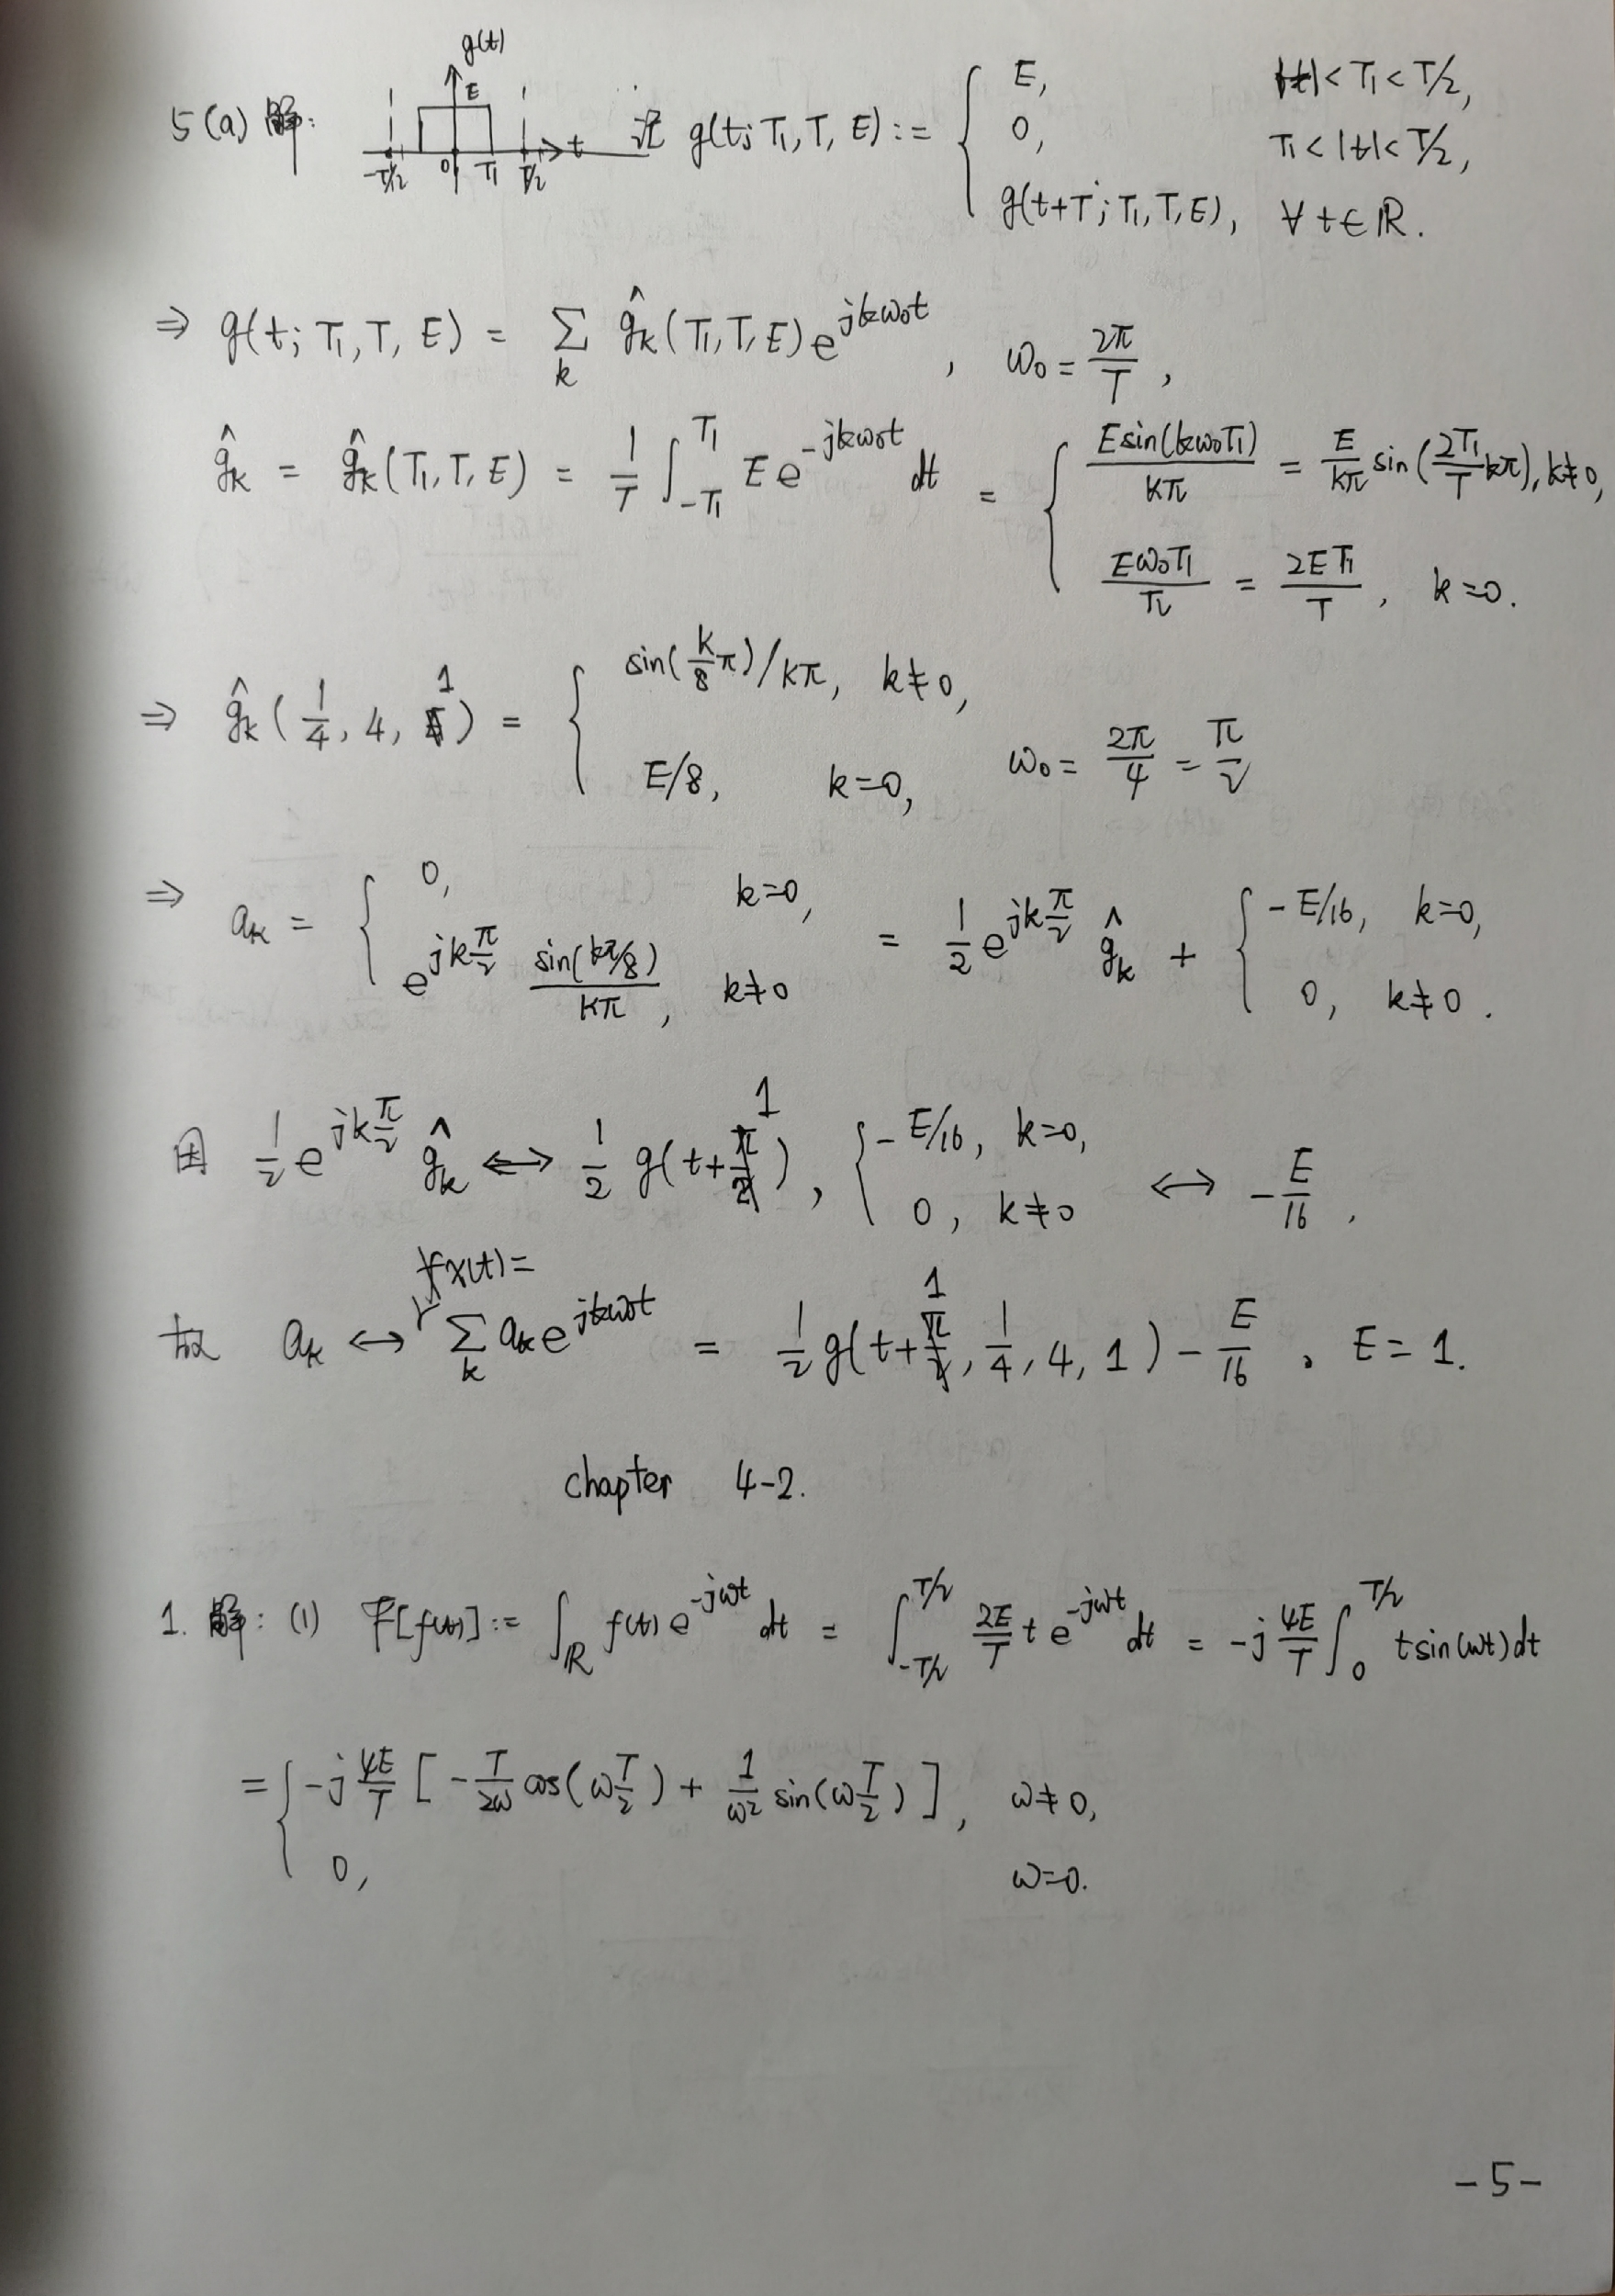 5(a) 解: g(t) E -T/2 0 T₁ T/2 t 记 g(t; T₁, T, E) := { E, |t| < T₁ < T/2,
0, T₁ < |t| < T/2,
g(t+T; T₁, T, E), ∀ t ∈ ℝ.
⇒ g(t; T₁, T, E) = Σ_k ĝ_k(T₁, T, E) e^{jkω₀t}, ω₀ = 2π/T,
ĝ_k = ĝ_k(T₁, T, E) = 1/T ∫_{-T₁}^{T₁} E e^{-jkω₀t} dt = { E sin(kω₀T₁)/kπ = E/kπ sin(2T₁/T kπ), k≠0,
Eω₀T₁/π = 2ET₁/T, k=0.
⇒ ĝ_k(1/4, 4, 1) = { sin(k/8 π)/kπ, k≠0,
E/8, k=0, ω₀ = 2π/4 = π/2
⇒ a_k = { 0, k=0,
e^{jkπ/2} sin(kπ/8)/kπ, k≠0 = 1/2 e^{jkπ/2} ĝ_k + { -E/16, k=0,
0, k≠0.
因 1/2 e^{jkπ/2} ĝ_k ⟷ 1/2 g(t+1), { -E/16, k=0,
0, k≠0 ⟷ -E/16,
故 a_k ⟷ x(t)= Σ_k a_k e^{jkω₀t} = 1/2 g(t+1, 1/4, 4, 1) - E/16, E=1.
chapter 4-2.
1. 解: (1) ℱ[f(t)] := ∫_ℝ f(t) e^{-jωt} dt = ∫_{-T/2}^{T/2} 2E/T t e^{-jωt} dt = -j 4E/T ∫_0^{T/2} t sin(ωt) dt
= { -j 4E/T [ -T/2ω cos(ω T/2) + 1/ω² sin(ω T/2) ], ω≠0,
0, ω=0.
-5-